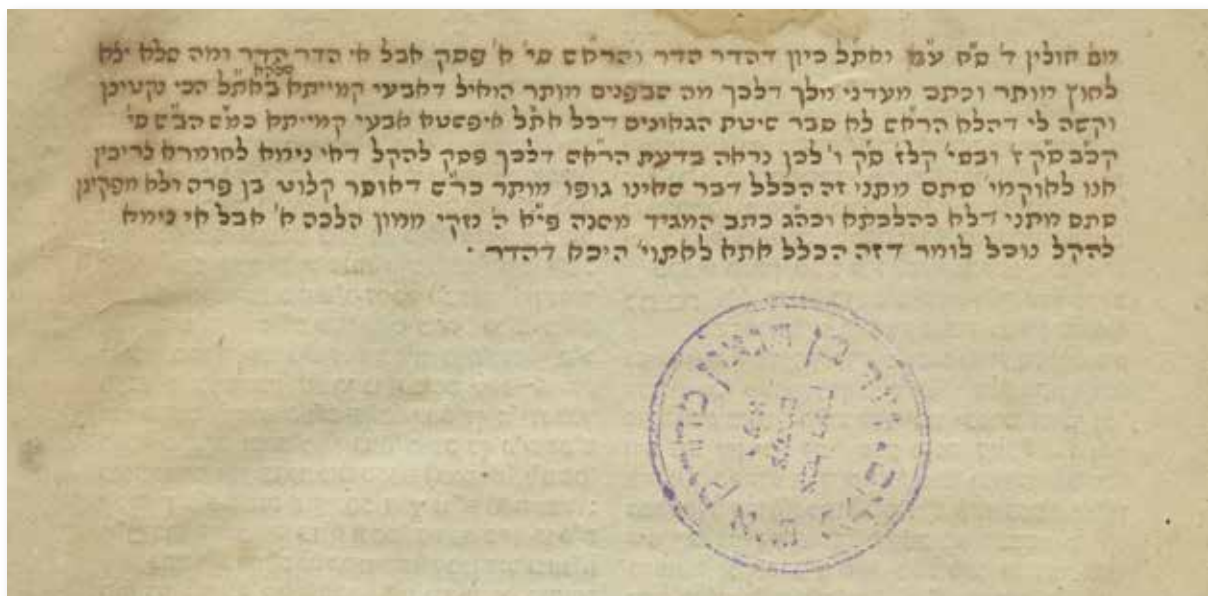 מס׳ חולין ד׳ ס״ח ע״ב ואת״ל כיון דהדר הדר והרא״ש סי׳ א׳ פסק אבל אי הדר הדר ומה שלא יצא
לחוץ מותר וכתב מעדני מלך דלכך מה שבפנים מותר הואיל דאבעי קמייתא באת״ל הכי נקטינן
וקשה לי דהלא הרא״ש לא סבר שיטת הגאונים דכל את״ל איפשטא אבעי קמייתא כמ״ש הב״ש סי׳
קל״ב ס״ק ז׳ ובסי׳ קל״ז ס״ק ו׳ לכן נראה בדעת הרא״ש דלכך פסק להקל דאי נימא לחומרא צריכין
אנו לאוקמי׳ סתם מתני׳ זה הכלל דבר שאינו גופו מותר כר״ש דאוסר קלוט בן פרה ולא מפקינן
סתם מתני׳ דלא כהלכתא וכה״ג כתב המגיד משנה פי״א ה׳ נזקי ממון הלכה א׳ אבל אי נימא
להקל נוכל לומר דזה הכלל אתא לאתויי׳ היכא דהדר ·
בן הגאון